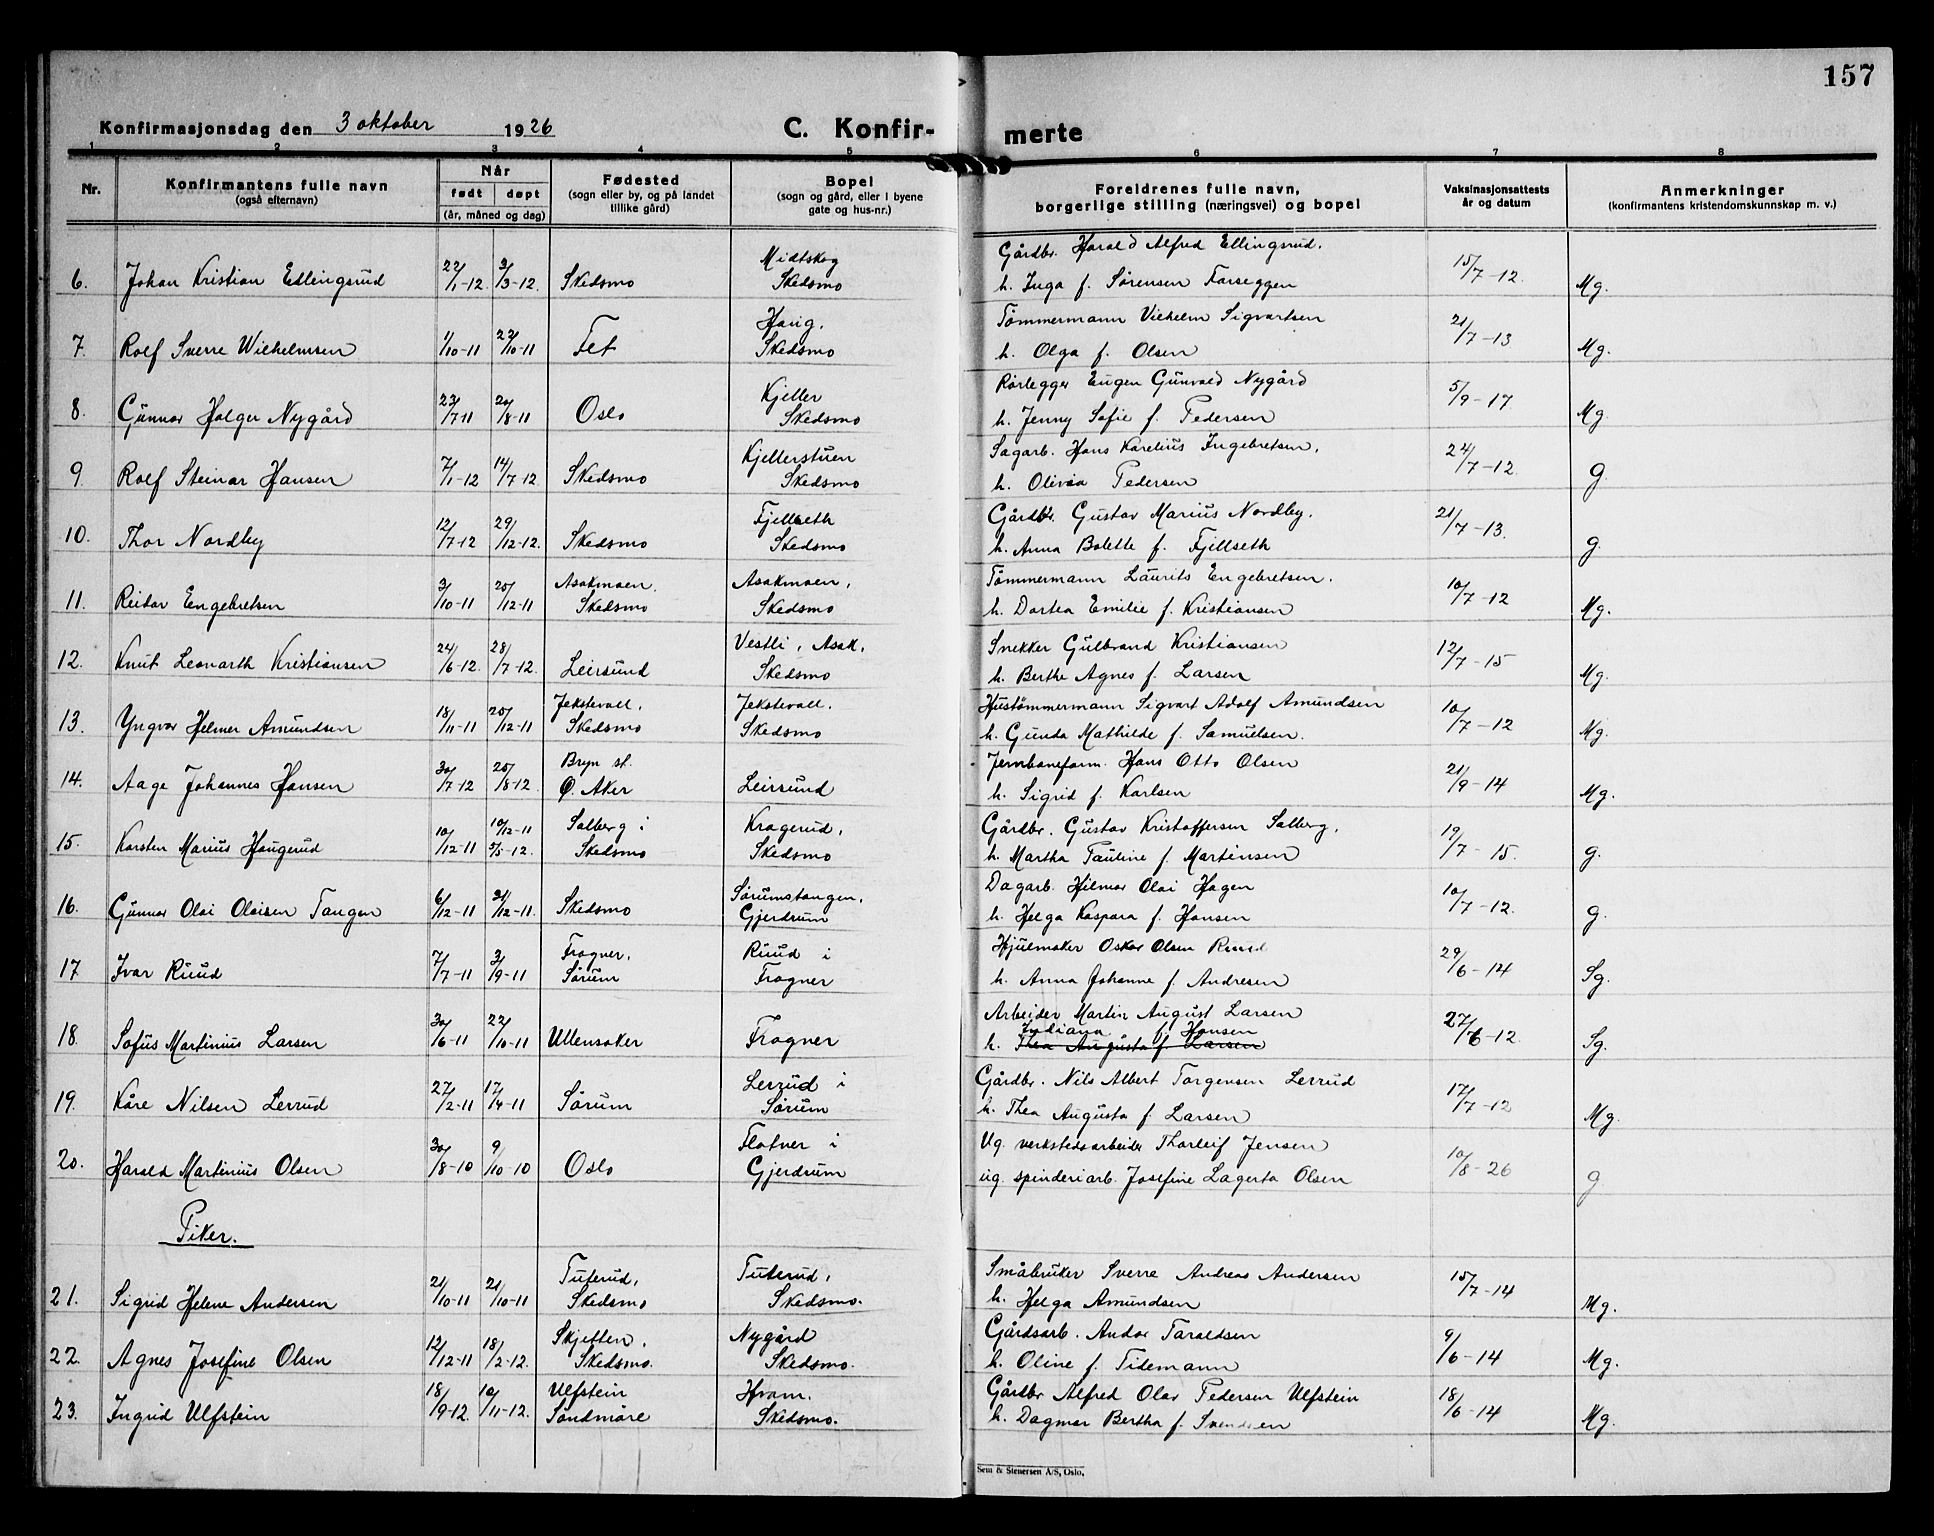 157
Konfirmasjonsdag den 3 oktober 1926 C. Konfir- merte
1 2 3 4 5 6 7 8
Nr. Konfirmantens fulle navn (også efternavn) Når født døpt (år, måned og dag) Fødested (sogn eller by, og på landet tillike gård) Bopel (sogn og gård, eller i byene gate og hus-nr.) Foreldrenes fulle navn, borgerlige stilling (næringsvei) og bopel Vaksinasjonsattests år og datum Anmerkninger (konfirmantens kristendomskunnskap m. v.)
Midtskog Gårdbr. Harald Alfred Ellingsrud.
6. Johan Kristian Ellingsrud 22/1-12. 3/3-12. Skedsmo Skedsmo h. Inga f. Sørensen Farseggen 15/7-12. Mg.
Haug. Tømmermann Vilhelm Sigvartsen
7. Rolf Sverre Wilhelmsen 1/10-11 22/10-11 Fet Skedsmo h. Olga f. Olsen 21/7-13 Mg.
Kjeller Rørlegger Eugen Gunvald Nygård
8. Gunnar Holger Nygård 23/7-11 20/8-11 Oslo Skedsmo h. Jenny Sofie f. Pedersen 5/9-17 Mg.
Kjellerstuen Sagarb. Hans Karelius Ingebretsen.
9. Rolf Steinar Hansen 7/1-12 14/7-12 Skedsmo Skedsmo h. Olivia Pedersen 24/7-12. g.
Fjellseth Gårdbr. Gustav Marius Nordby.
10. Thor Nordby 12/7-12 29/12-12. Skedsmo Skedsmo h. Anna Bolette f. Fjellseth 21/7-13. g.
Asakmoen. Asakmoen. Tømmermann Laurits Engebretsen.
11. Reidar Engebretsen 3/10-11 25/12-11 Skedsmo Skedsmo h. Dortea Emilie f. Kristiansen 10/7-12 Mg.
Vestli, Asak. Snekker Gulbrand Kristiansen
12. Knut Leonarth Kristiansen 24/6-12. 28/7-12. Leirsund Skedsmo h. Berthe Agnes f. Larsen 12/7-15 Mg.
Jekstevoll. Jekstevoll. Hustømmermann Sigvart Adolf Amundsen
13. Yngvar Helmer Amundsen 18/11-11 25/12-11 Skedsmo Skedsmo h. Gunda Mathilde f. Samuelsen. 10/7-12 Mg.
Bryn st. Jernbaneform. Hans Otto Olsen
14. Aage Johannes Hansen 30/7-12 25/8-12. Ø. Aker Leirsund h. Sigrid f. Karlsen 21/9-14 Mg.
10/12-11 Solberg i Kragerud. Gårdbr. Gustav Kristoffersen Solberg.
15. Karsten Marius Haugerud 10/12-11 5/5-12. Skedsmo Skedsmo h. Martha Pauline f. Martinsen 19/7-15. g.
Sørumstangen. Dagarb. Hilmar Olai Hagen
16. Gunnar Olai Olaisen Tangen 6/12-11 31/12-11. Skedsmo Gjerdrum h. Helga Kaspara f. Hansen 10/7-12. g.
Frogner. Ruud i Hjulmaker Oskar Olsen Ruud
17 Ivar Ruud 7/7-11 3/9-11 Sørum Frogner h. Anna Johanne f. Andresen 29/6-14 Sg.
Arbeider Martin August Larsen
Indiana f. Hansen
18. Sofus Martinius Larsen 30/6-11 22/10-11 Ullensaker Frogner h. Thea Augusta f. Larsen 27/6-12. Sg.
Lerrud i Gårdbr. Nils Albert Torgensen Lerrud
19. Kåre Nilsen Lerrud 27/2-11 17/4-11 Sørum Sørum h. Thea Augusta f. Larsen 17/7-12 Mg.
Flatner i Ug. verkstedsarbeider Thorleif Jensen
20. Harald Martinius Olsen 30/8-10 9/10-10 Oslo Gjerdrum ug. spinderiarb. Josefine Lagerta Olsen 10/8-26 g
Piker.
Tuterud. Tuterud. Småbruker Sverre Andreas Andersen
21. Sigrid Helene Andersen 21/10-11 21/10-11 Skedsmo Skedsmo. h. Helga Amundsen 15/7-14 Mg.
Skjetten. Nygård Gårdsarb. Andor Taraldsen
22. Agnes Josefine Olsen 12/12-11 18/2-12. Skedsmo. Skedsmo. h. Oline f. Tidemann 9/6-14 Mg.
Ulfstein Hvam. Gårdbr Alfred Olav Pedersen Ulfstein
23. Ingrid Ulfstein 18/9-12. 10/11-12. Søndmøre Skedsmo. h. Dagmar Bertha f. Svendsen 18/6-14 Mg.
Sem & Stenersen A/S, Oslo.